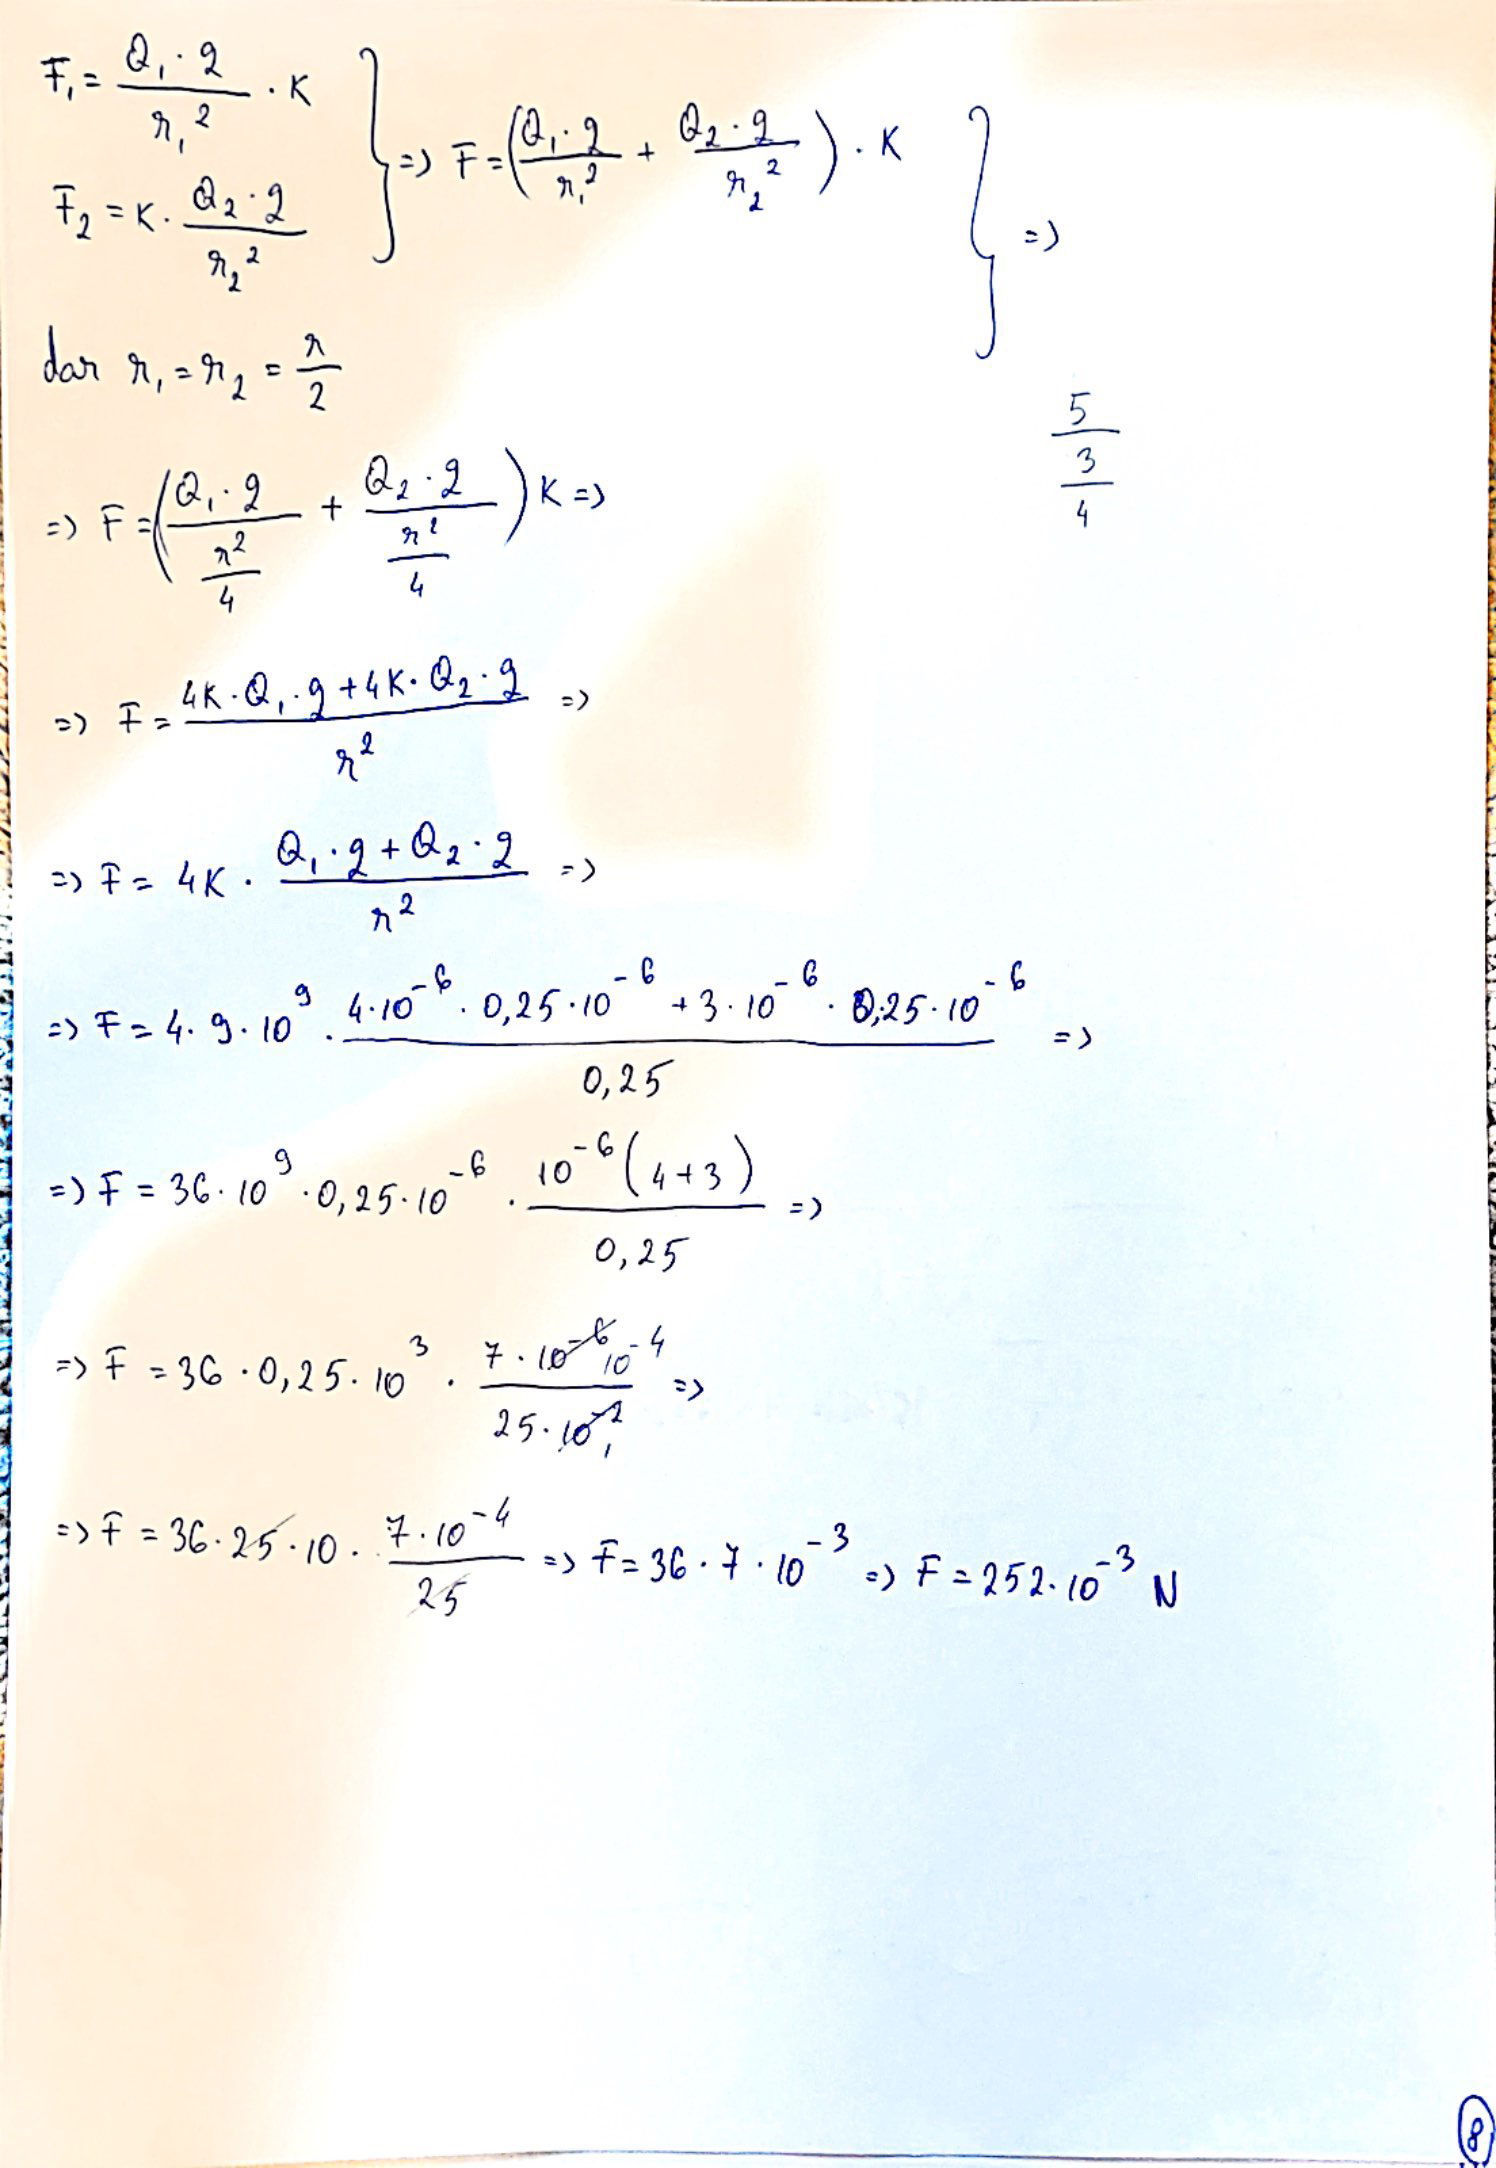 F₁ = Q₁·q / r₁² · K } => F = (Q₁·q / r₁² + Q₂·q / r₂²) · K } =>
F₂ = K · Q₂·q / r₂²
dar r₁ = r₂ = r/2
5 / (3/4)
=> F = (Q₁·q / (r²/4) + Q₂·q / (r²/4)) K =>
=> F = (4K·Q₁·q + 4K·Q₂·q) / r² =>
=> F = 4K · (Q₁·q + Q₂·q) / r² =>
=> F = 4·9·10⁹ · (4·10⁻⁶ · 0,25·10⁻⁶ + 3·10⁻⁶ · 0,25·10⁻⁶) / 0,25 =>
=> F = 36·10⁹ · 0,25·10⁻⁶ · 10⁻⁶(4+3) / 0,25 =>
=> F = 36 · 0,25 · 10³ · 7·10⁻⁶ 10⁻⁴ / 25·10⁻² 1 =>
=> F = 36·25·10 · 7·10⁻⁴ / 25 => F = 36·7·10⁻³ => F = 252·10⁻³ N
8